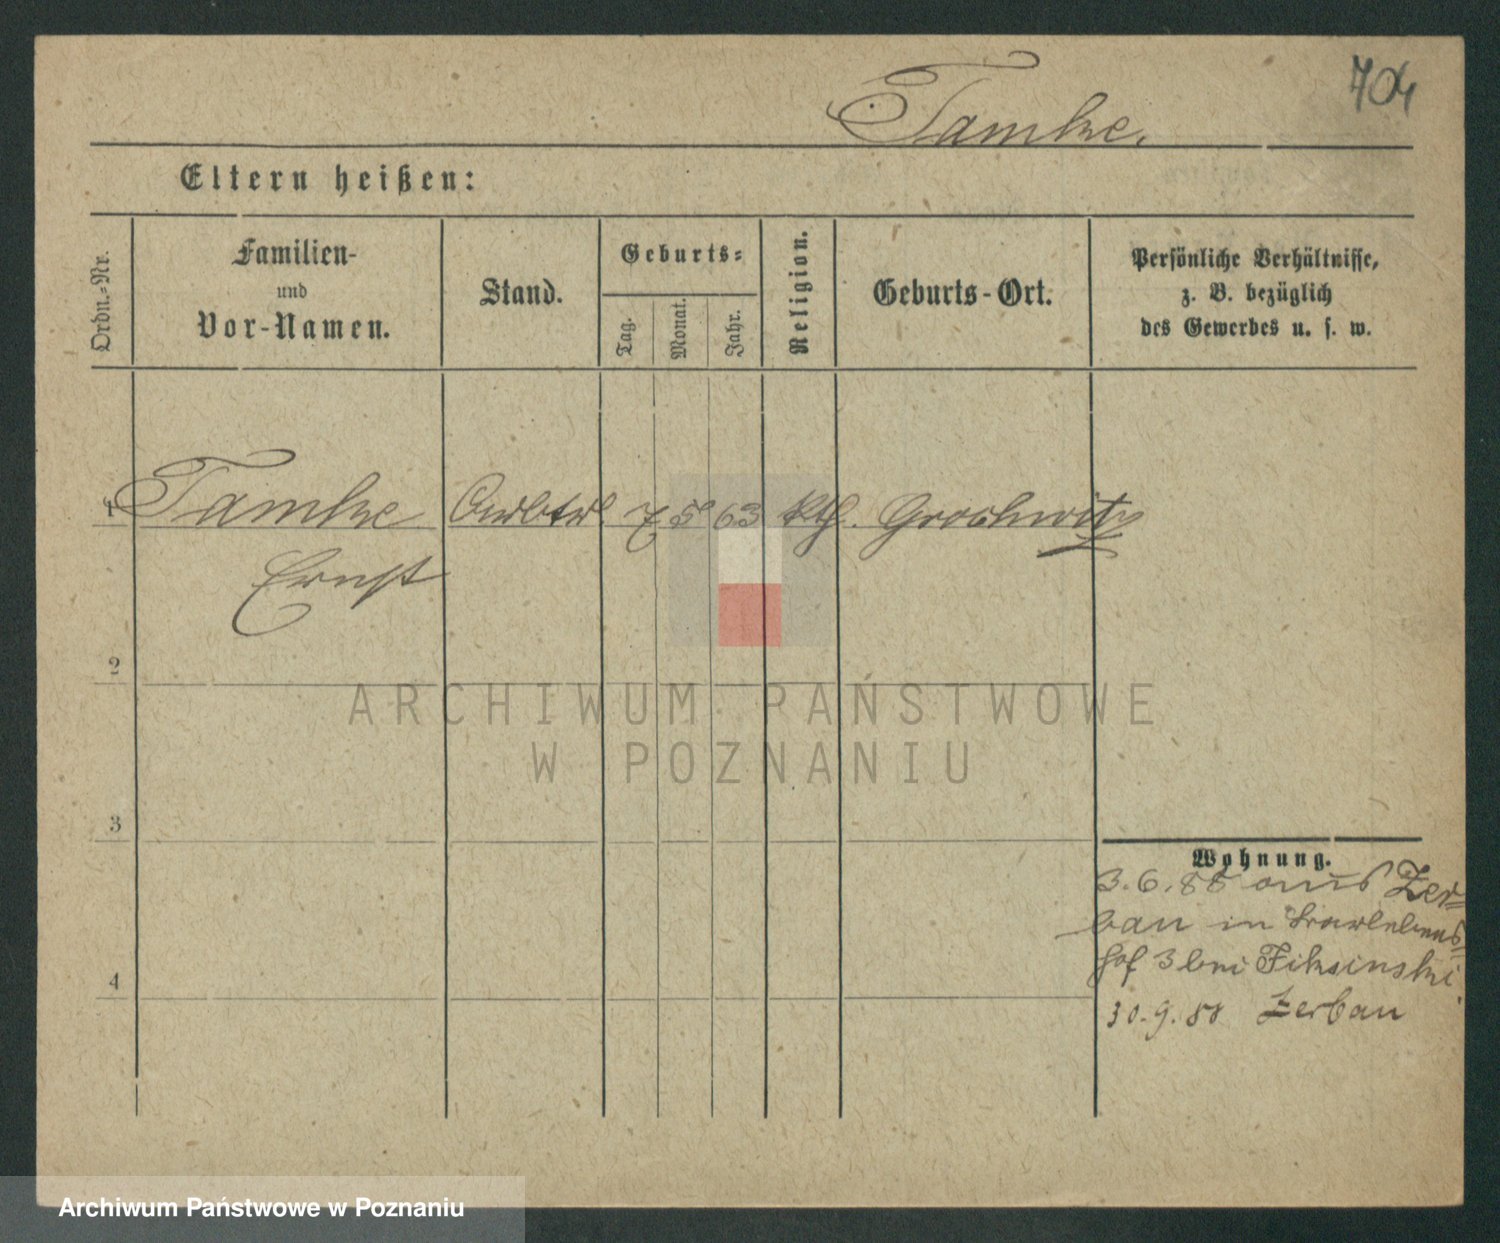 704
Tamke.
Eltern heißen:
Ordn.-Nr.
Familien-
und
Vor-Namen.
Stand.
Geburts-
Tag.
Monat.
Jahr.
Religion.
Geburts-Ort.
Persönliche Verhältnisse,
z. B. bezüglich
des Gewerbes u. s. w.
1 Tamke 7 5 63 kth. Grochwitz
Ernst
2
3
4
Wohnung.
3.6.88 aus Zer-
bau in
hof 3 bei Fiksinski.
30.9.88 Zerbau
ARCHIWUM PAŃSTWOWE
W POZNANIU
Archiwum Państwowe w Poznaniu